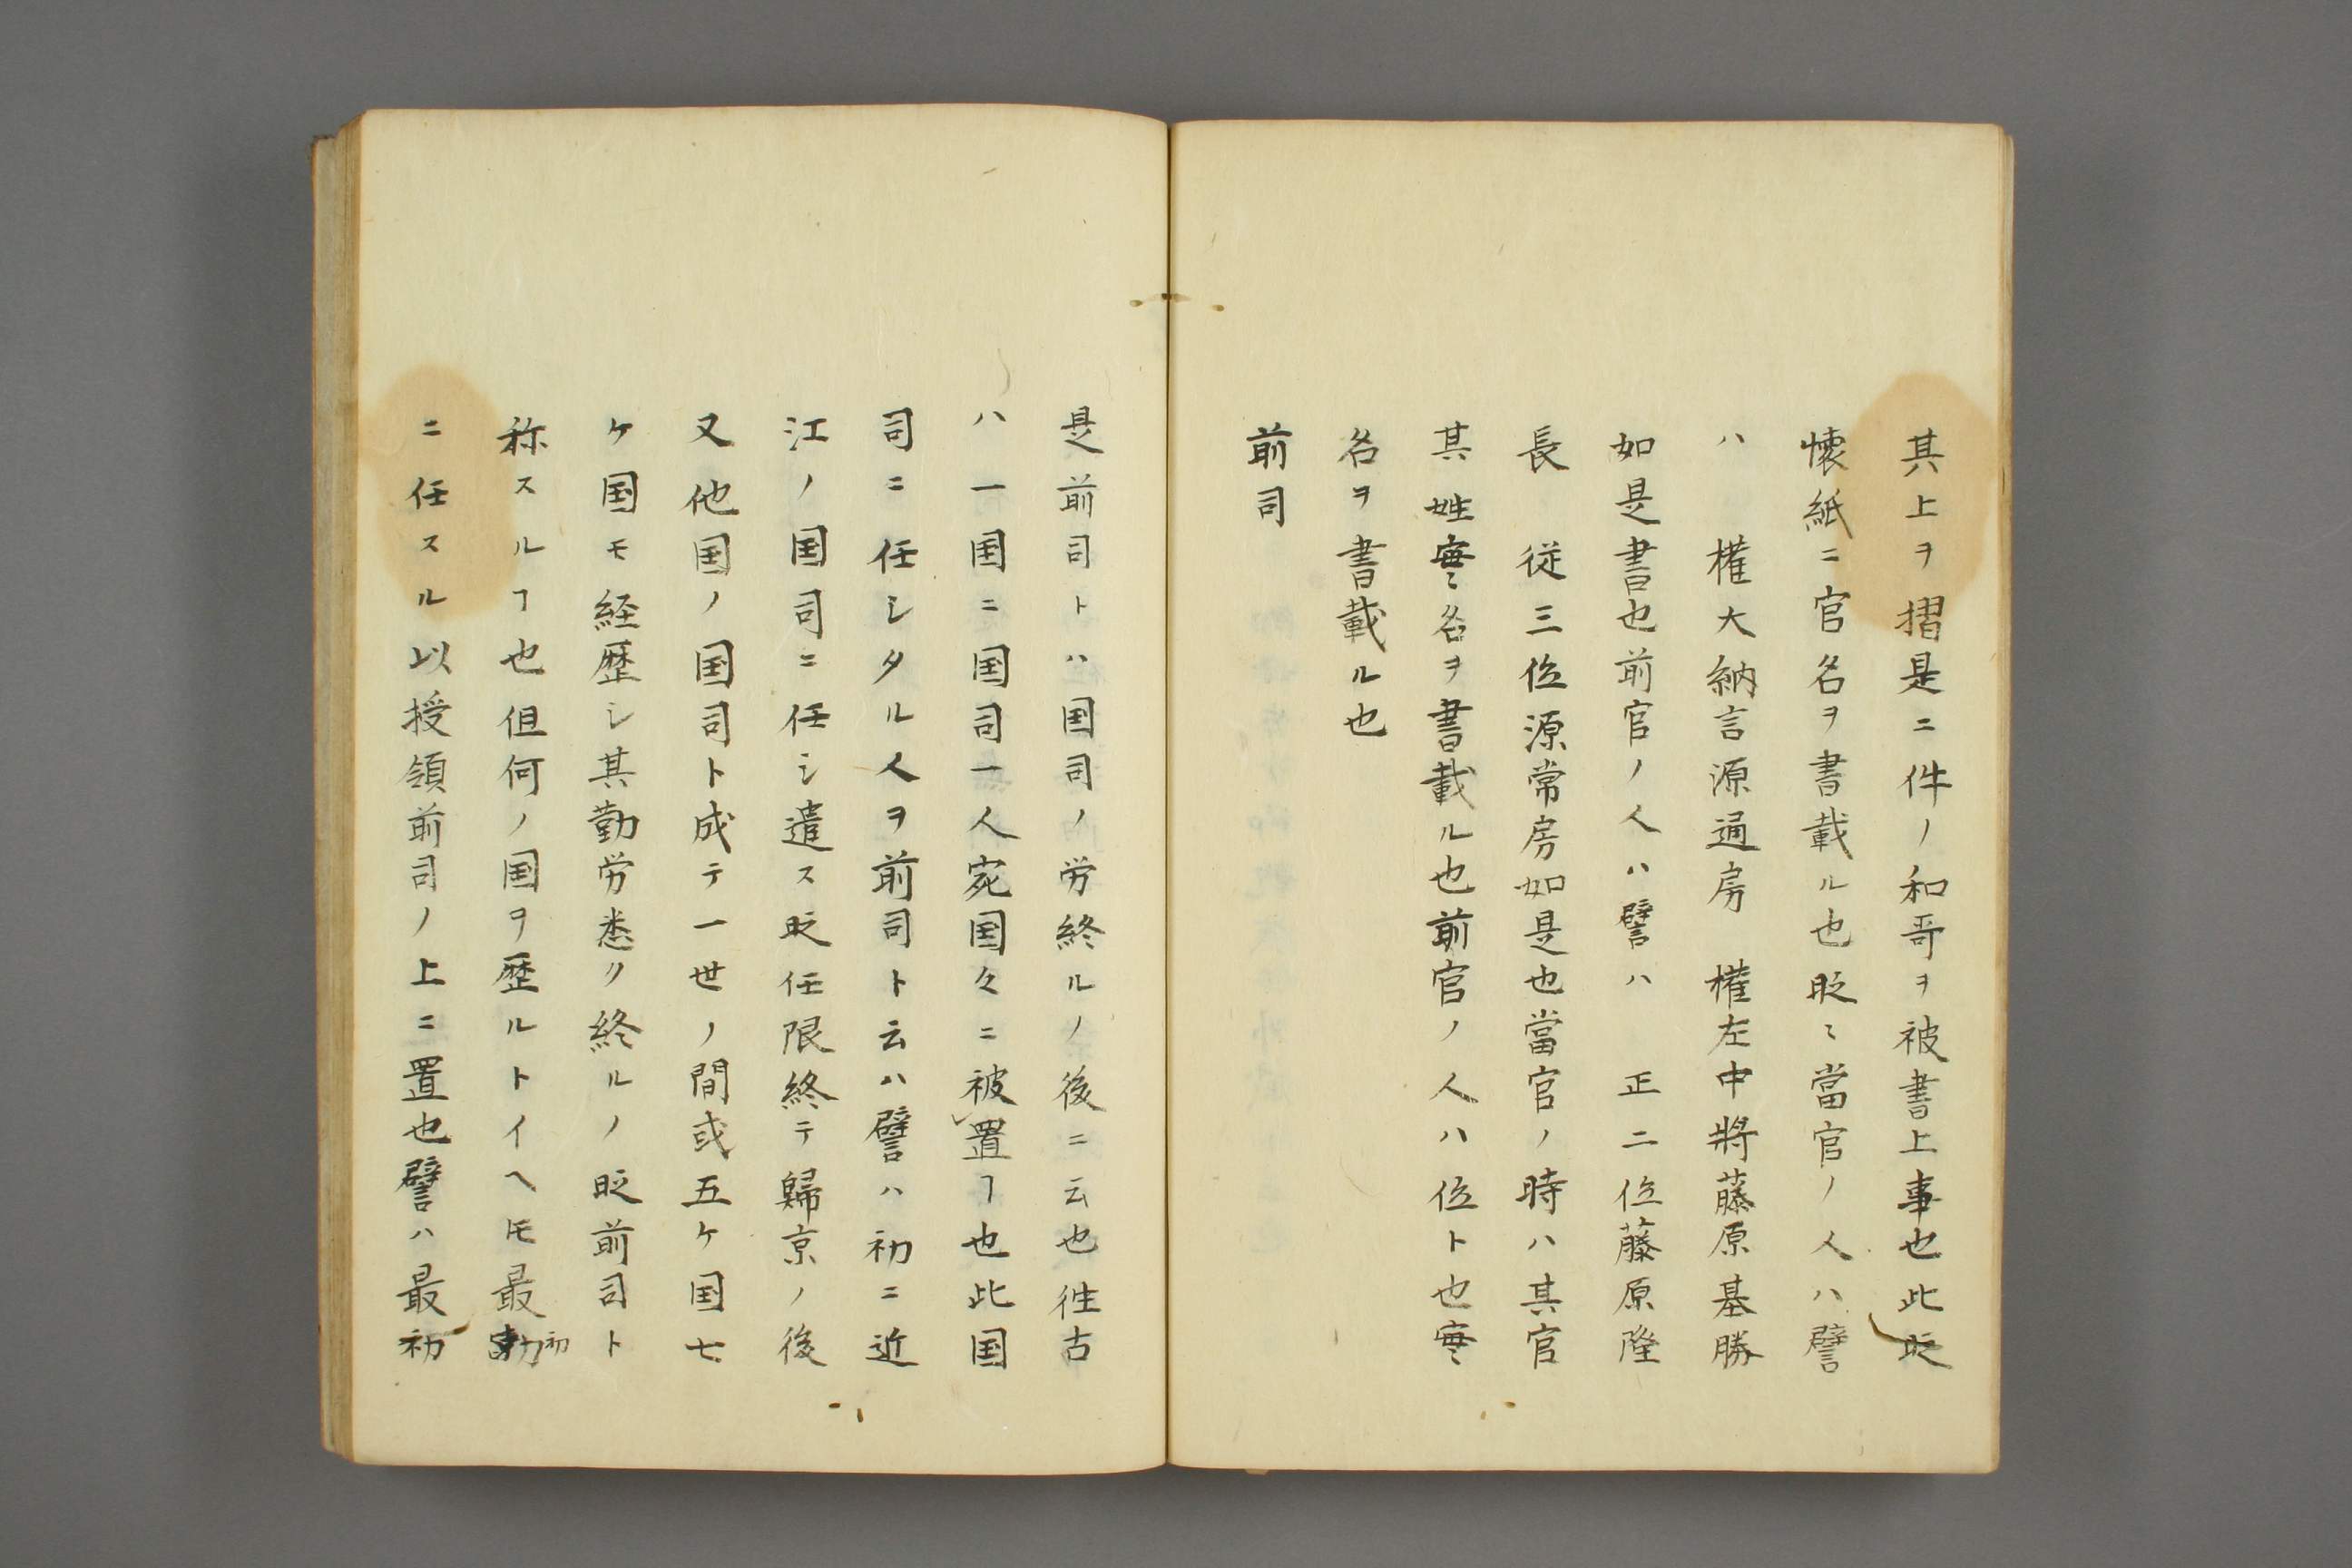 其上ヲ摺是ニ件ノ和哥ヲ被書上事也此時
懐紙ニ官名ヲ書載ル也時ミ當官ノ人ハ譬
ハ　權大納言源通房　權左中將藤原基勝
如是書也前官ノ人ハ譬ハ　正二位藤原隆
長　従三位源常房如是也當官ノ時ハ其官
其姓実ミ名ヲ書載ル也前官ノ人ハ位ト也実
名ヲ書載ル也
前司
是前司トハ国司ノ労終ルノ後ニ云也徃古
ハ一国ニ国司一人宛国々ニ被置ヿ也此国
司ニ任シタル人ヲ前司ト云ハ譬ハ初ニ近
江ノ国司ニ任シ遣ス時任限終テ歸京ノ後
又他国ノ国司ト成テ一世ノ間或五ケ国七
ケ国モ経歴シ其勤労悉ク終ルノ時前司ト
称スルヿ也但何ノ国ヲ歴ルトイヘ𪜈最初
ニ任スル以授領前司ノ上ニ置也譬ハ最初